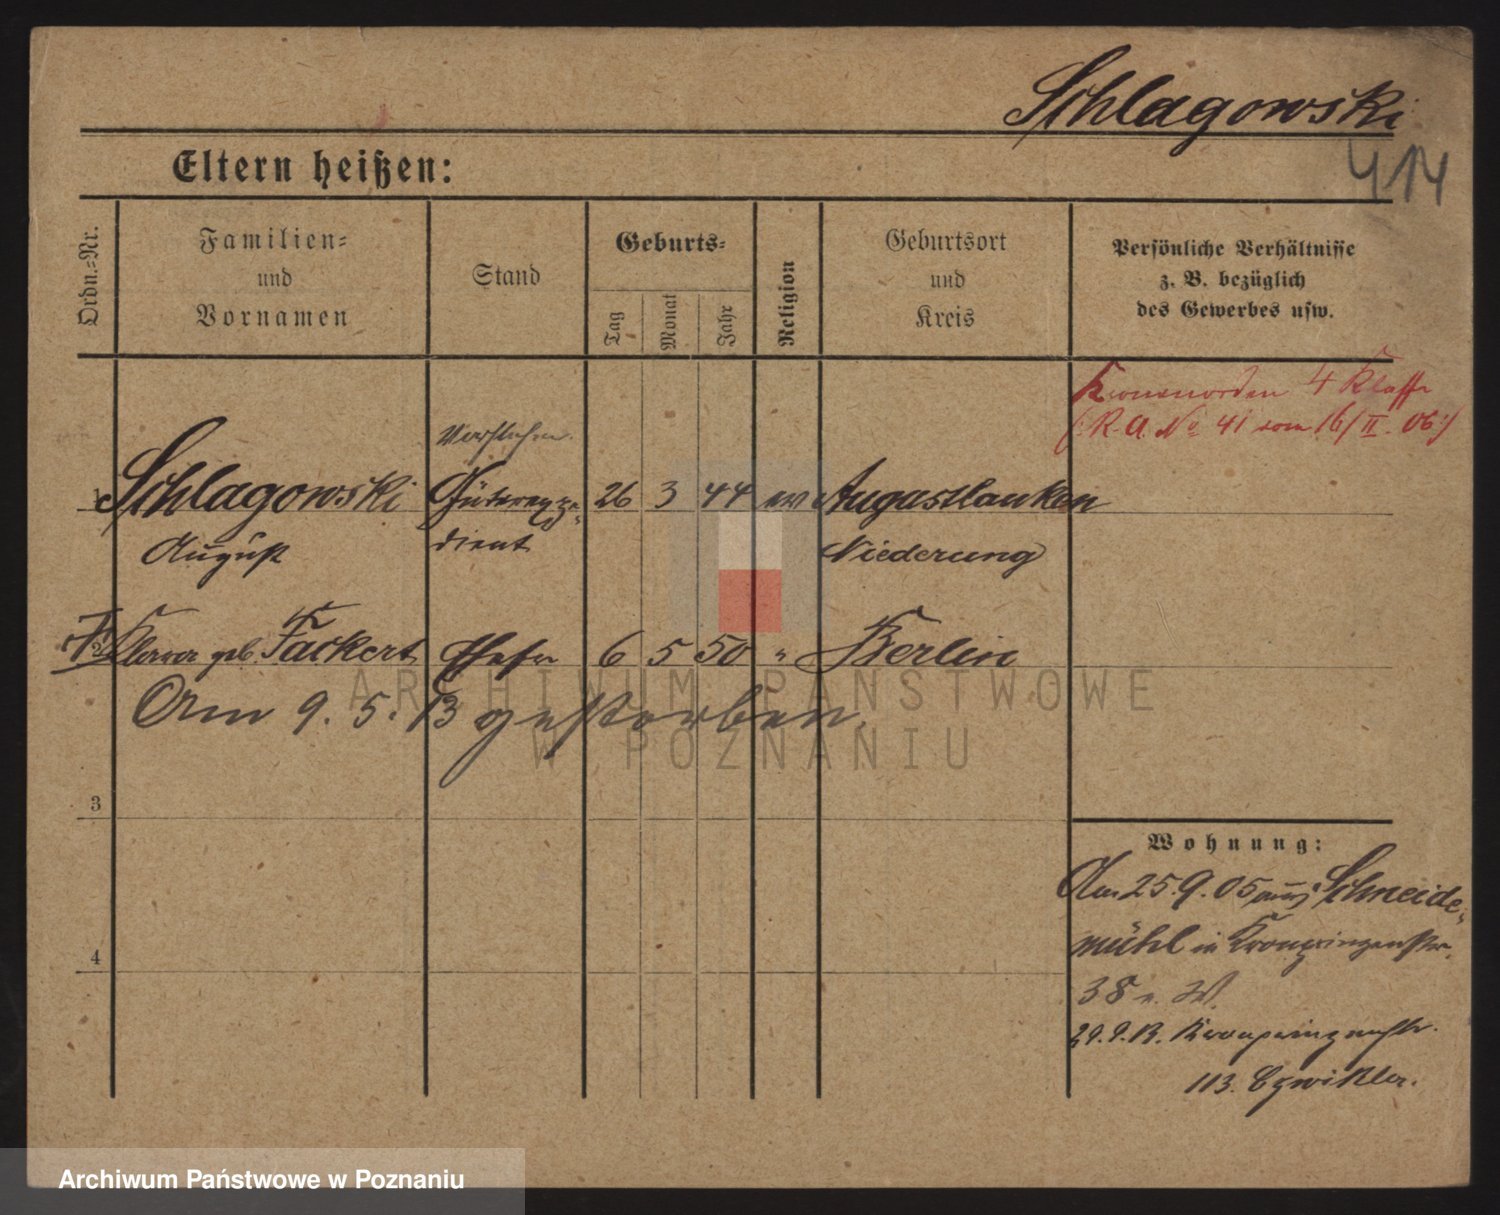 Schlagowski
414
Eltern heißen:
Ordn.-Nr.
Familien-
und
Vornamen
Stand
Geburts-
Tag
Monat
Jahr
Religion
Geburtsort
und
Kreis
Persönliche Verhältnisse
z. B. bezüglich
des Gewerbes usw.
Kronenorden 4 Klasse
(R. A. No 41 vom 16/II. 06.)
1 Schlagowski Güterexpe- 26 3 44 ev Augastlauken
August dient Niederung
2 geb. Fackert Ehefr 6 5 50 " Berlin
Am 9. 5. 13 gestorben.
3
4
Wohnung:
Am 25.9.05 aus Schneide-
mühl in Kronprinzenstr.
38 v. W.
29.9.13. Kronprinzenstr.
113.
ARCHIWUM PAŃSTWOWE
W POZNANIU
Archiwum Państwowe w Poznaniu